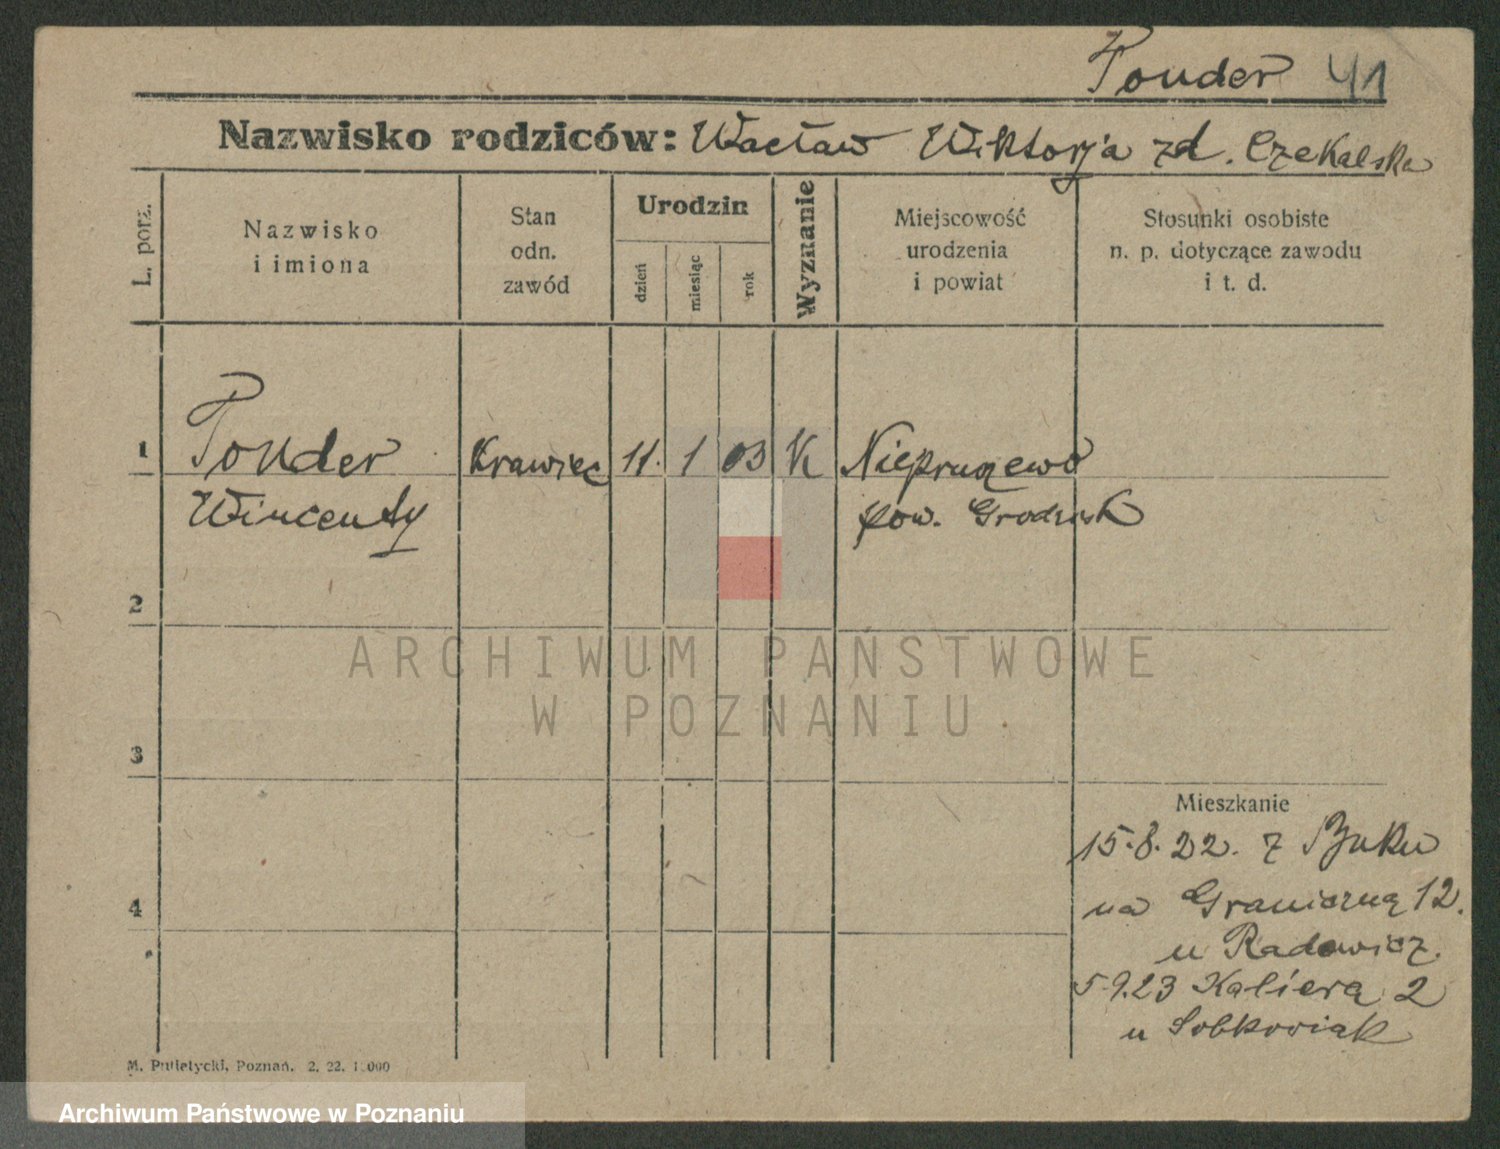 Tonder 41
Nazwisko rodziców: Wacław Wiktorja zd. Czekalska
L. porz.
Nazwisko
i imiona
Stan
odn.
zawód
Urodzin
dzień
miesiąc
rok
Wyznanie
Miejscowość
urodzenia
i powiat
Stosunki osobiste
n. p. dotyczące zawodu
i t. d.
1 Tonder Krawiec 11. 1 03 K Niepruszewo
Wincenty pow. Grodzisk
2
ARCHIWUM PAŃSTWOWE
W POZNANIU
3
Mieszkanie
15.8.22. z Buku
4
na Graniczną 12.
u Radowicz.
5.9.23 Kaliera 2
u Sobkowiak
M. Putiatycki, Poznań. 2. 22.
Archiwum Państwowe w Poznaniu